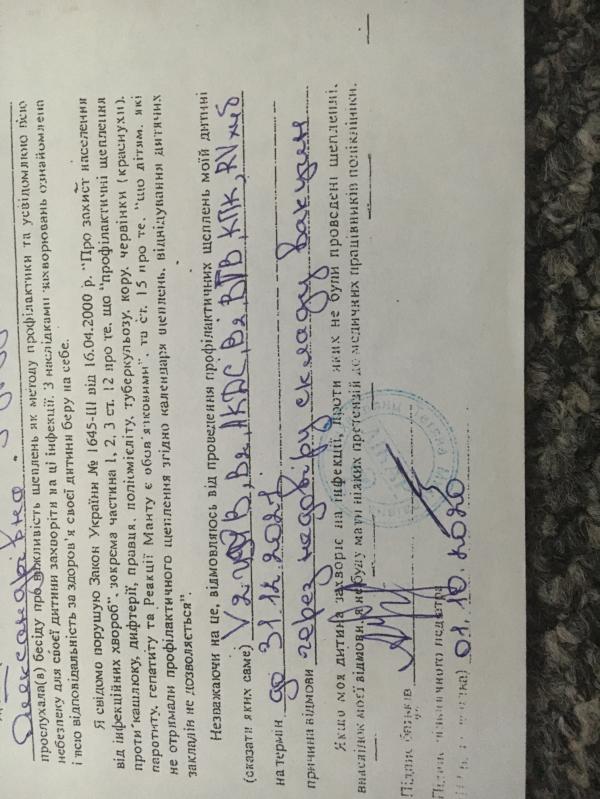 Олександрівно
прослухала(в) бесіду про важливість щеплень як методу профілактики та усвідомлюю всю
небезпеку для своєї дитини захворіти на ці інфекції. З наслідками захворювань ознайомлена
і всю відповідальність за здоров'я своєї дитини беру на себе.
Я свідомо порушую Закон України № 1645-ІІІ від 16.04.2000 р. "Про захист населення
від інфекційних хвороб", зокрема частина 1, 2, 3 ст. 12 про те, що "профілактичні щеплення
проти кашлюку, дифтерії, правця, поліомієліту, туберкульозу, кору, червінки (краснухи),
паротиту, гепатиту та Реакції Манту є обов'язковими", та ст. 15 про те, "що дітям, які
не отримали профілактичного щеплення згідно календаря щеплень, відвідування дитячих
закладів не дозволяється".
Незважаючи на це, відмовляюсь від проведення профілактичних щеплень моїй дитині
(сказати яких саме) АКДС, КПК,
на термін до 31.12.2027
причина відмови через недовіру складу вакцин
Якщо моя дитина захворіє на інфекції, проти яких не були проведені щепленні,
внаслідок моєї відмови, я не буду мати ніяких претензій до медичних працівників поліклініки.
Підпис батьків
Підпис
01.10.2020